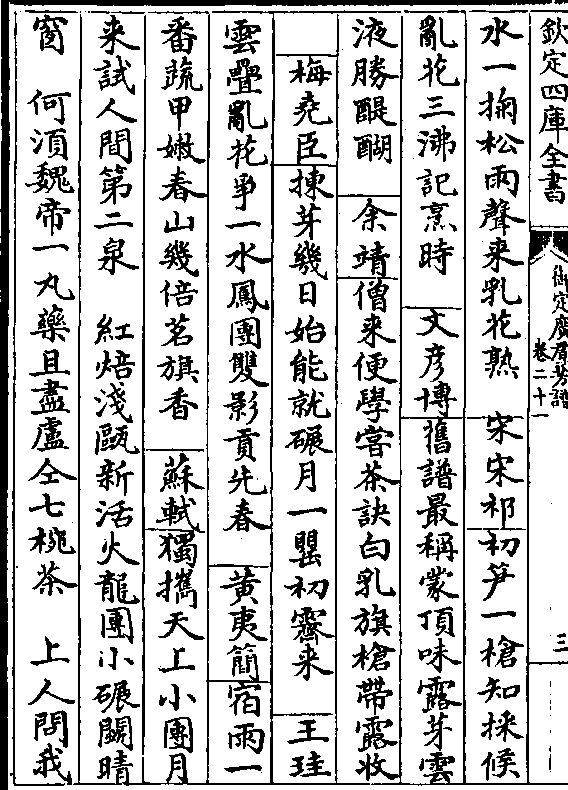 欽定四庫全書
御定廣羣芳譜
卷二十一
三
水一掬松雨聲来乳花熟　宋宋祁初笋一槍知採候
亂花三沸記烹時　文彦博舊譜最稱蒙頂味露芽雲
液勝醍醐　余靖僧来便學嘗茶訣白乳旗槍帶露收
梅堯臣揀芽幾日始能就碾月一罌初寄来　王珪
雲疊亂花爭一水鳳團雙影貢先春　黄夷簡宿雨一
番蔬甲嫩春山幾倍茗旗香　蘇軾獨攜天上小團月
来試人間第二泉　紅焙淺甌新活火龍團小碾鬭晴
窗　何湏魏帝一丸藥且盡盧仝七椀茶　上人問我